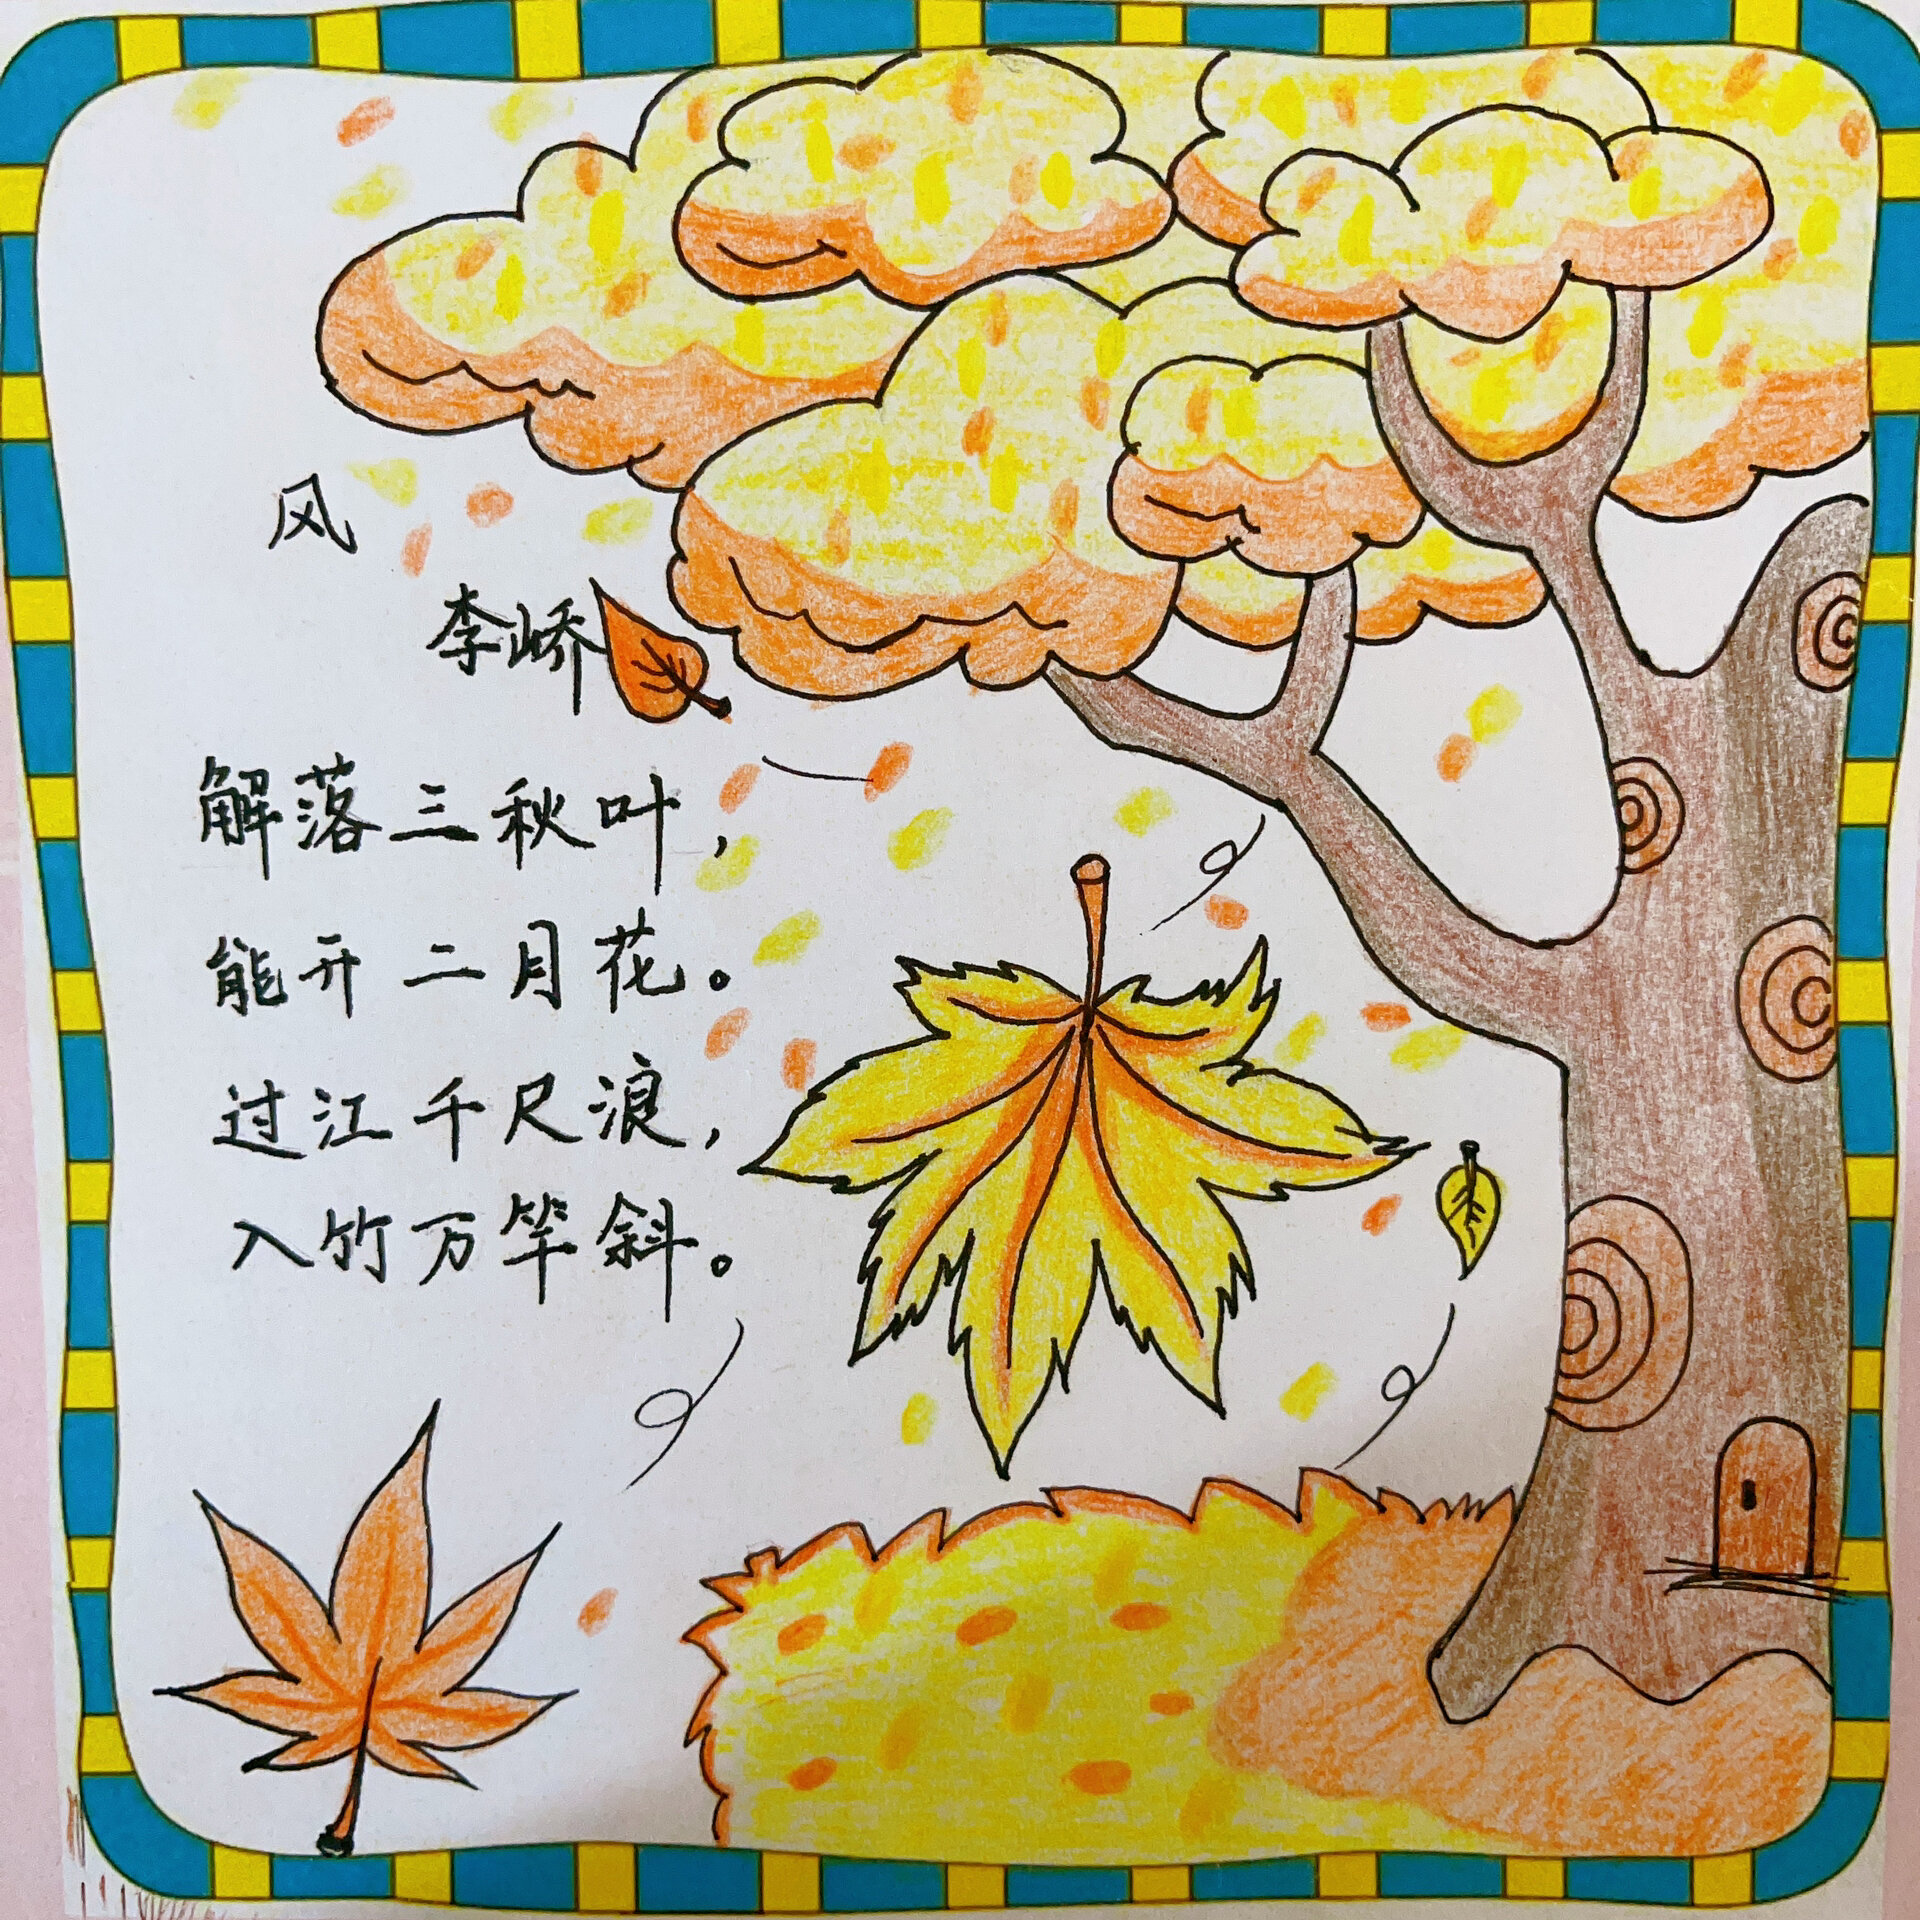 风
李峤
解落三秋叶，
能开二月花。
过江千尺浪，
入竹万竿斜。